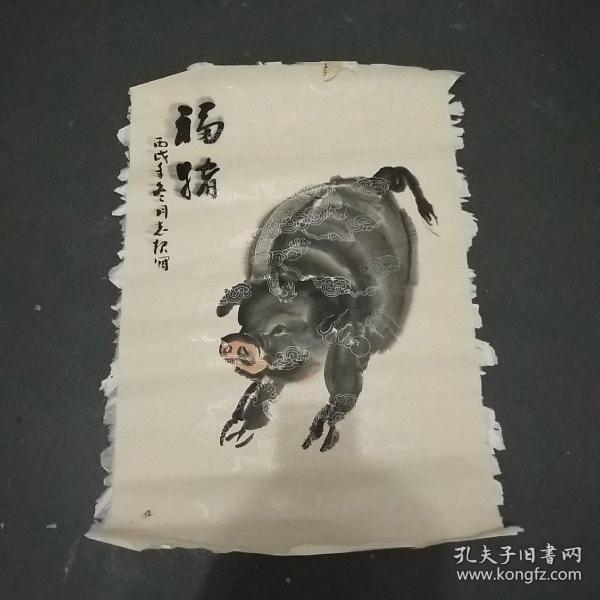 福猪
丙戌年冬月志权画
孔夫子旧書网
www.kongfz.com